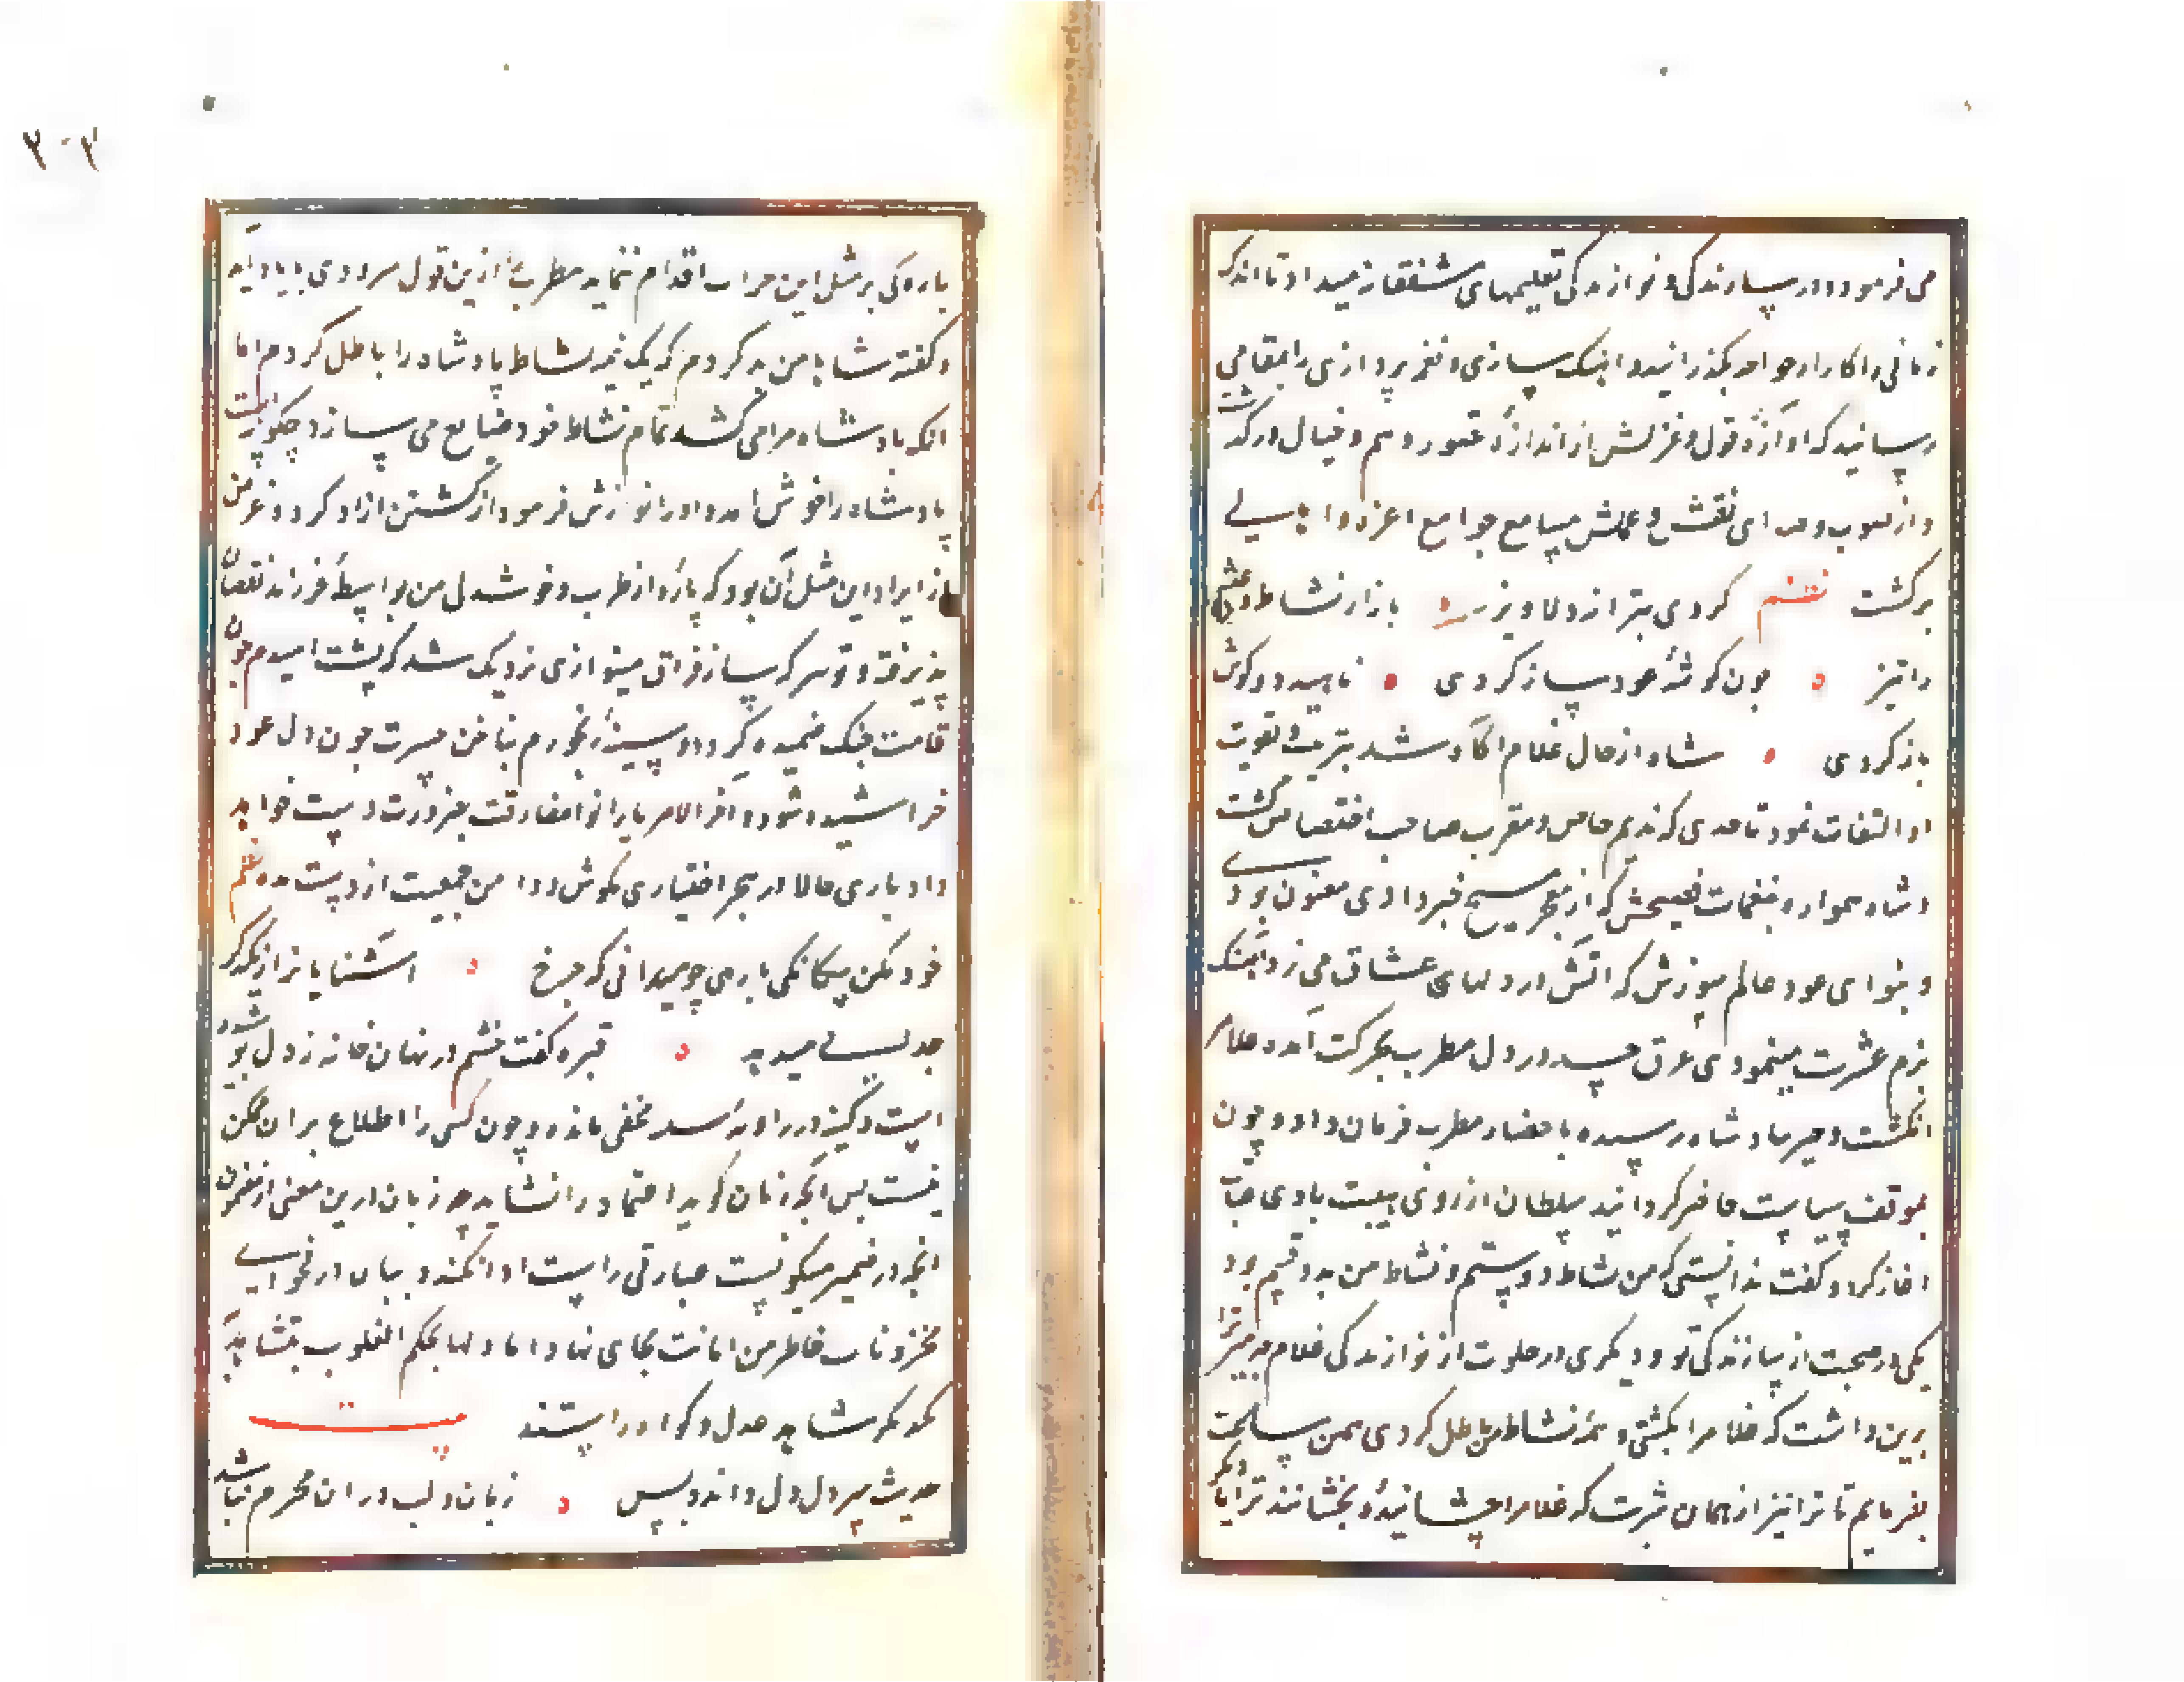 می فرمود و در سازندگی و نوازندگی تعلیمهای مشفقانه میداد تا اندک
زمانی را کار از خواجه بگذرانید و اهنک سازی و نغمه پردازی را بمقامی
رسانید که اوازهٔ قول و غزلش از اندازهٔ تصور وهم و خیال درگذشت
و از صوب و صدای نقش و عملش مسامع جوامع اعزه و ا
برگشت نظم کردی بترانه دلاویز بازار نشاط و عیش
را تیز جون گوشهٔ عود ساز کردی ناهید دو گوش
باز کردی شاه از حال غلام اگاه شد بتربیت و تقویت
او التفات نمود تا حدی که ندیم خاص و مقرب صاحب اختصاص گشت
و شاه همواره بنغمات فصیحش که از معجز مسیح خبر دادی مفتون بودی
و بنوای عود عالم سوزش که اتش در دلهای عشاق می زد اهنک
بزم عشرت مینمودی عرق حسد در دل مطرب بحرکت آمد و غلام
انکشت و خبر بپادشاه رسیده باحضار مطرب فرمان داد و چون
بموقف سیاست حاضر گردانیدند سلطان از روی هیبت با وی عتاب
اغاز کرد و گفت ندانستی که من نشاط دوستم و نشاط من بدو قسم بود
یکی در صحبت از سازندگی تو و دیگری در خلوت از نوازندگی غلام چه چیز ترا
برین داشت که غلام را بکشتی و همه نشاط من باطل کردی همین ساعت
بفرمایم تا ترا نیز از همان شربت که غلام را چشانیدهٔ بچشانند تا دیگر
باره کی بر مثل این جرات اقدام ننماید مطرب را ازین قول سرودی با یاد آمد
و گفت شاها من بد کردم که یک نیمه نشاط پادشاه را باطل کردم اما
انکه پادشاه مرا می کشد تمام نشاط خود ضایع می سازد چگونه است
پادشاه را خوش آمد و او را نوازش فرمود از کشتن ازاد کرد و غرض من
از ایراد این مثل آن بود که پارهٔ از طرب و خوشدلی من بواسطهٔ فرزند نقصان
پذیرفته و تو هم که ساز فراق مینوازی نزدیک شد که پشت امیدم چون
قامت چنک خمیده گردد و سینهٔ رنجورم بناخن حسرت چون دل عود
خراشیده شود و اخر الامر یارانرا مفارقت بضرورت دست خواهد
داد باری حالا در هجر اختیاری مکوش و دامن جمعیت از دست مده نظم
خود مکن بیکانگی با ما چو میدانی که چرخ اشنایانرا از یکدیگر
جدایی میدهد قبره گفت خشم در نهان خانه ز دل پوشیده
است و کینه در زاویه سینه مخفی مانده و چون کسی را اطلاع بران ممکن
نیست پس انچه زبان گوید اعتماد را نشاید چه زبان درین معنی از مضمون
انچه در ضمیر میگویست عبارتی راست ادا نکند و بیان در فحوای
مخزونات خاطر من امانت بجای نیارد اما دلها بحکم القلوب تتشاهد
یکدیگر را شاهد عدل و گواه راستند بیت
حدیث سر دل دل داند و بس زبان و لب دران محرم نباشد
۳۰۳